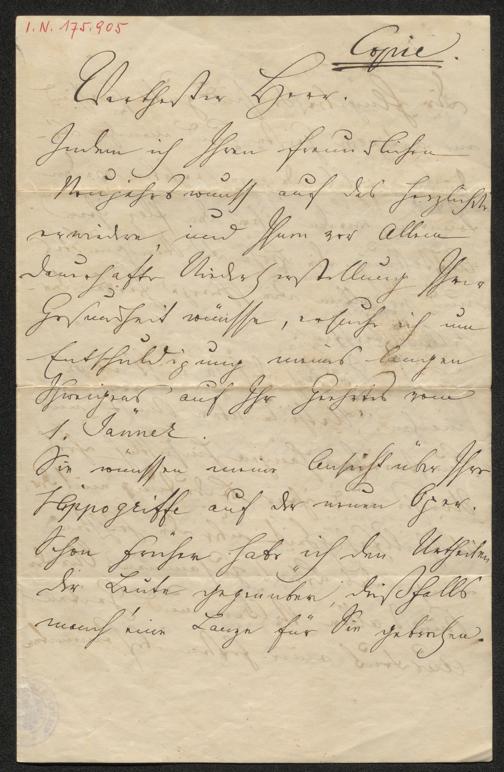 I. N. 175.905
Copie.
Werthester Herr.
Indem ich Ihren freundlichen
Neujahrswunsch auf das herzlichste
erwiedere, und Ihnen vor Allem
dauerhafte Wiederherstellung Ihrer
Gesundheit wünsche, ersuche ich um
Entschuldigung meines langen
Schweigens auf Ihr Geehrtes vom
1. Jänner.
Sie wünschen meine Ansicht über Ihre
Hippogriffe auf der neuen Oper.
Schon früher habe ich den Urtheilen
der Leute gegenüber, dießfalls
manch' eine Lanze für Sie gebrochen.